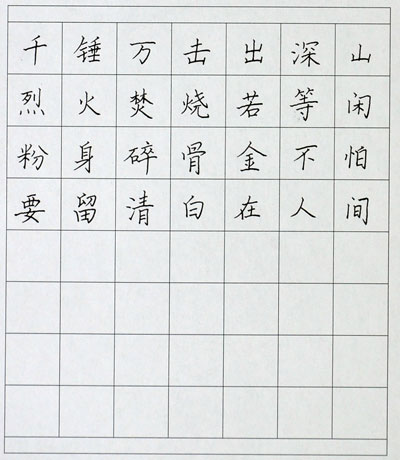 千锤万击出深山
烈火焚烧若等闲
粉身碎骨金不怕
要留清白在人间